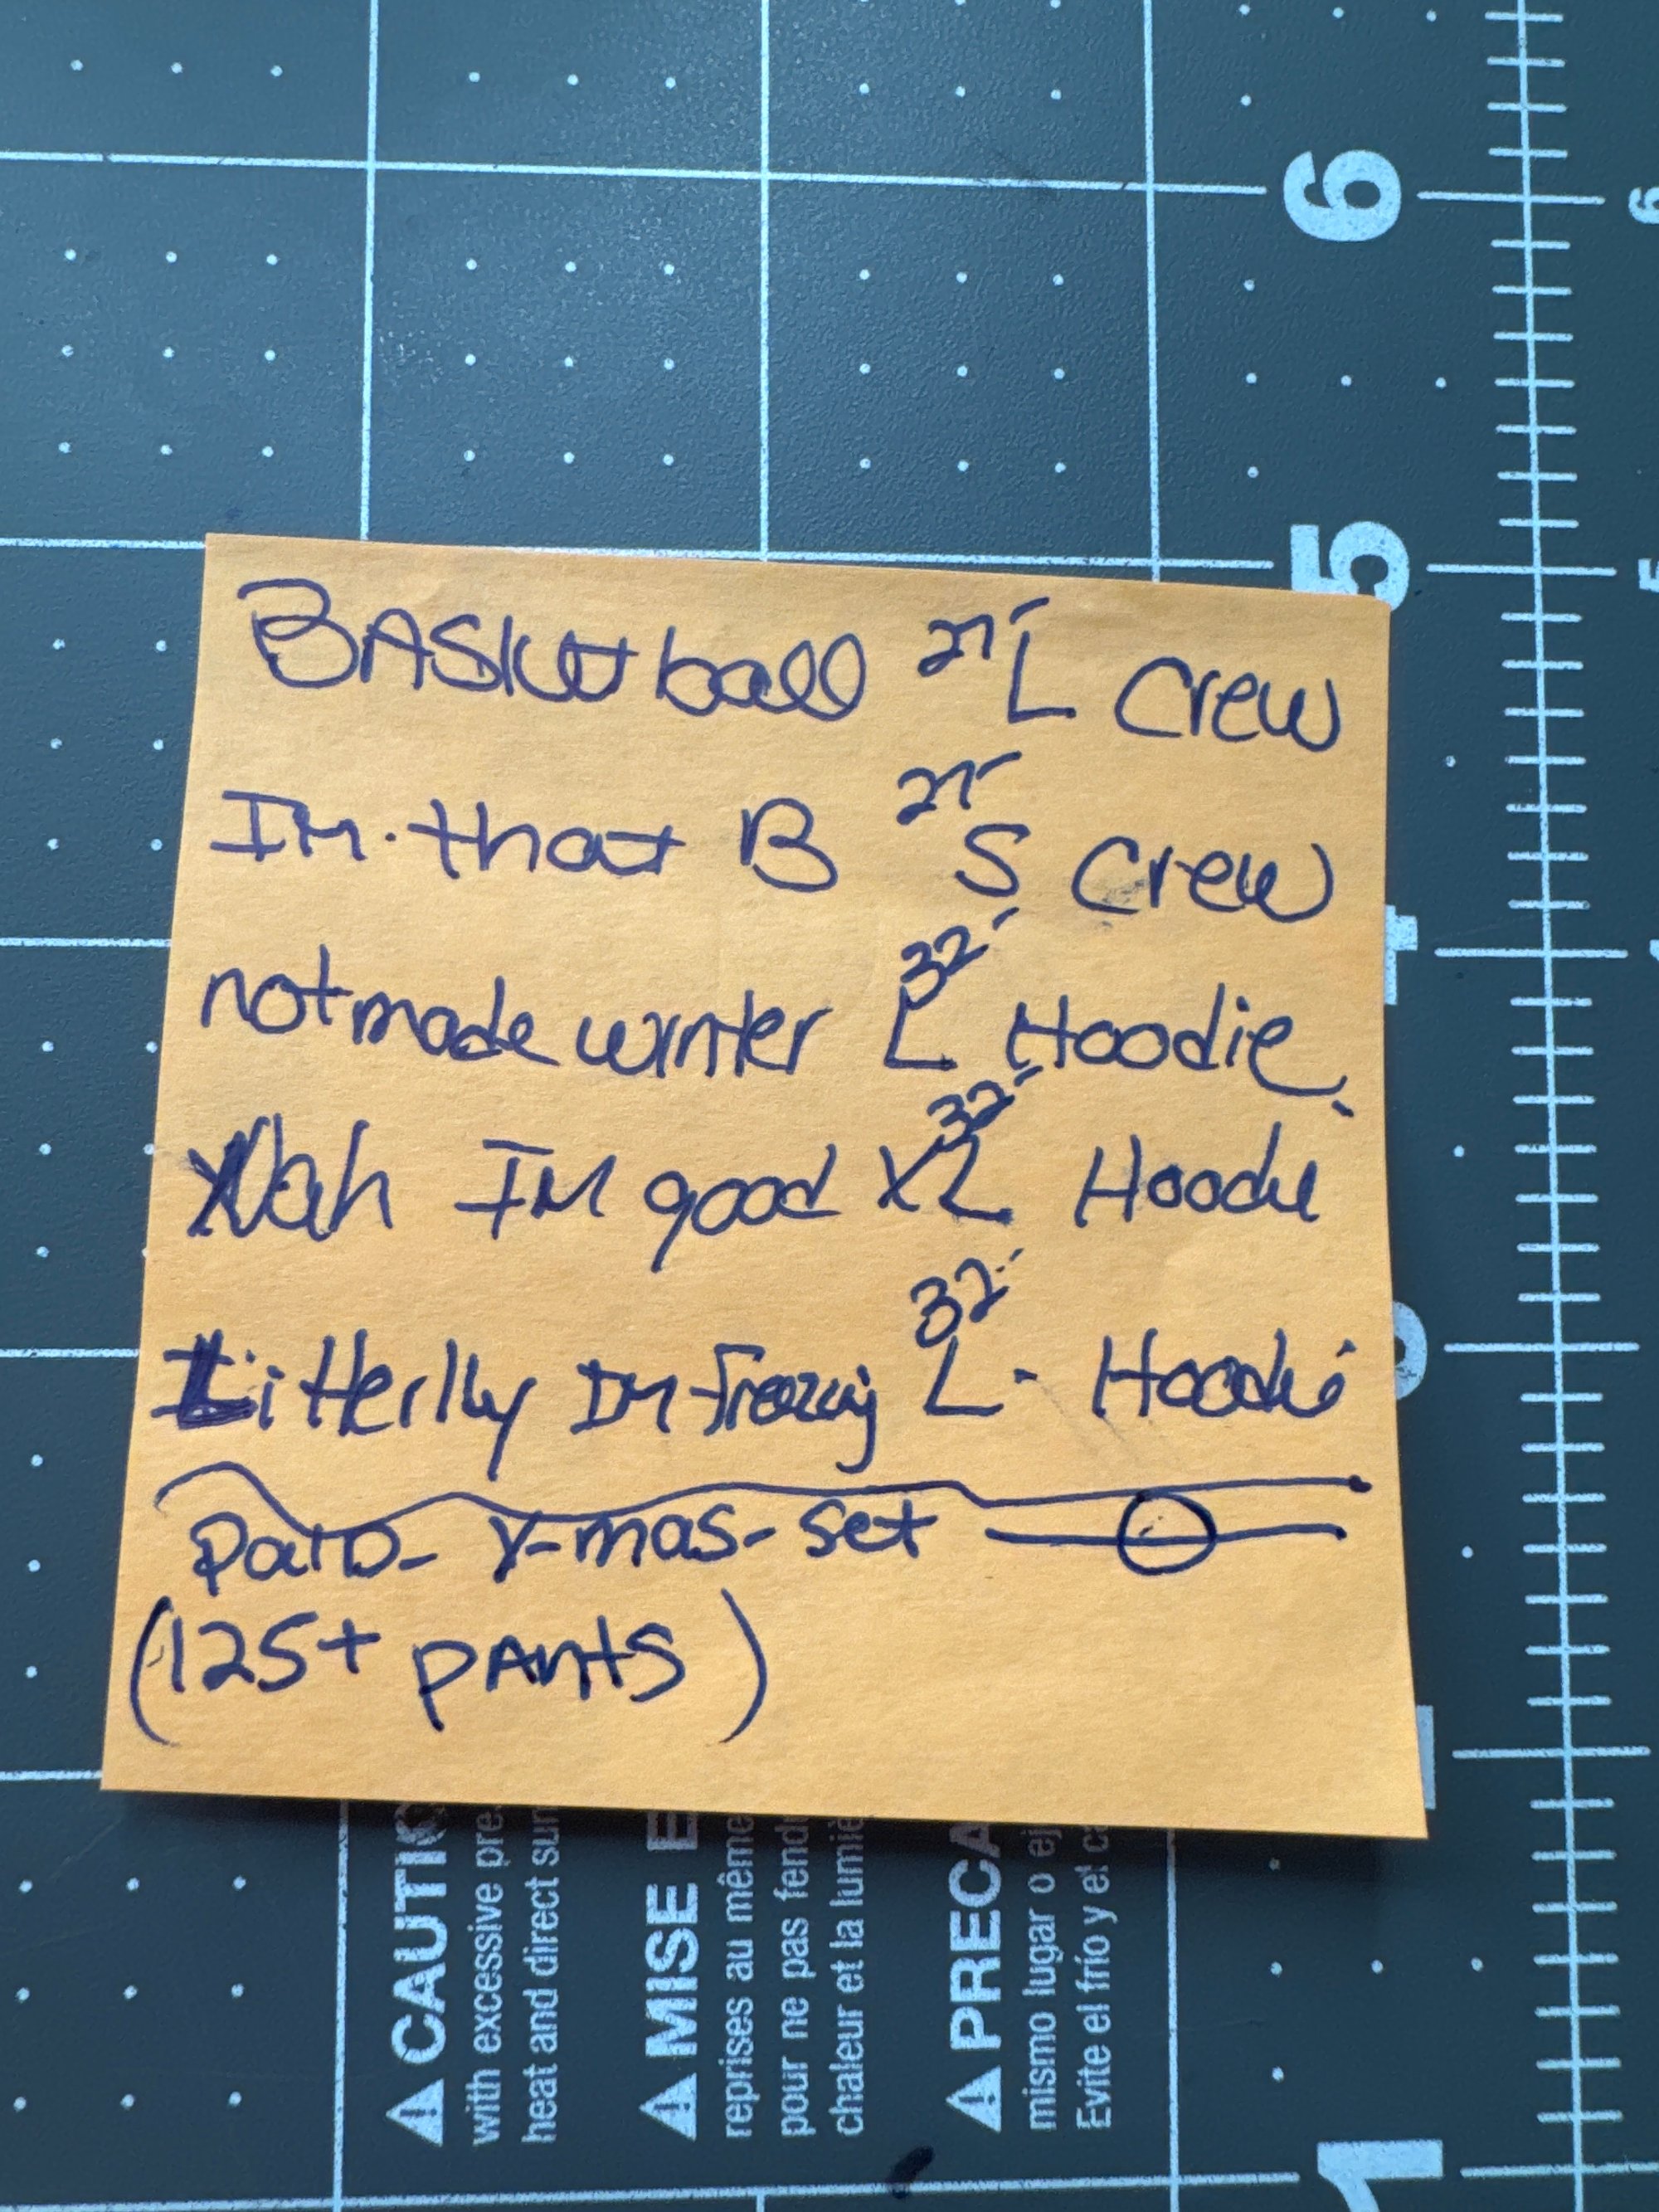 6
6
5
5
BASKetball 27- L Crew
Im that B 27- S Crew
4
not made winter 32- L Hoodie
Nah IM good 32- XL Hoodie
Litterlly IM Frezing 32- L - Hoodie
PaiD- X-mas- set
(125+ pants)
CAUTIO
with excessive pre
heat and direct sun
MISE E
reprises au même
pour ne pas fend
chaleur et la lumiè
PRECA
mismo lugar o ej
Evite el frío y el ca
1